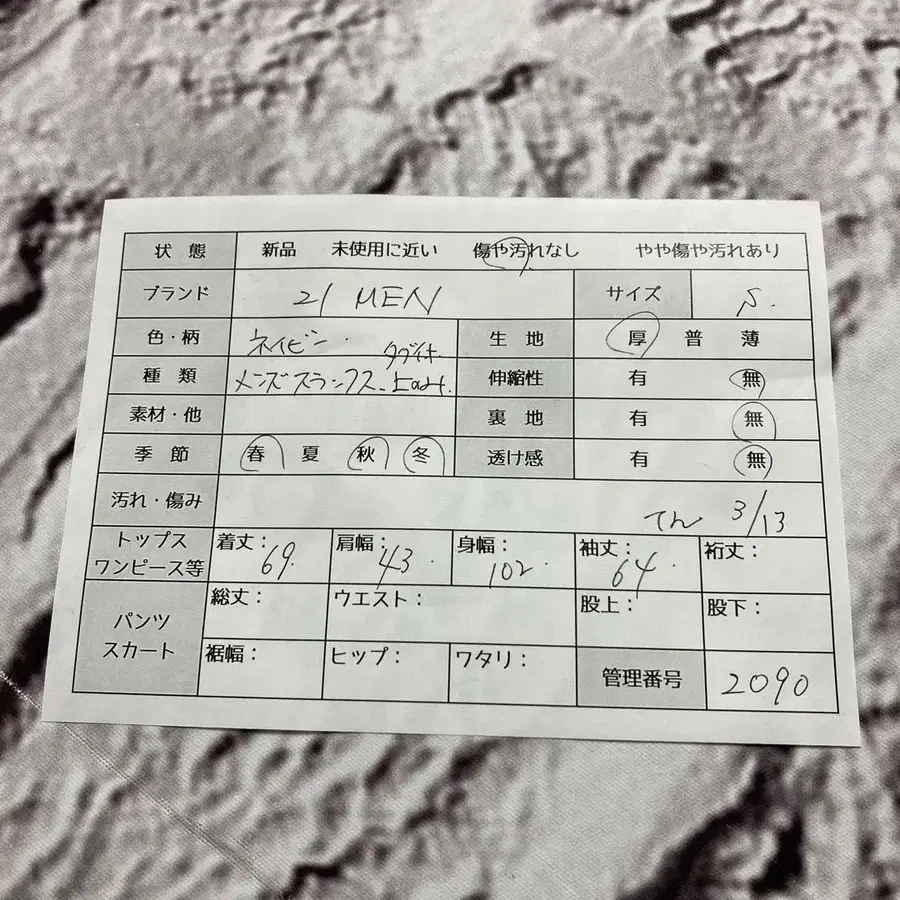 状態 新品 未使用に近い 傷や汚れなし やや傷や汚れあり
ブランド 21 MEN サイズ S.
色・柄 ネイビー 生地 厚 普 薄
種類 メンズスランクス 伸縮性 有 無
素材・他 裏地 有 無
季節 春 夏 秋 冬 透け感 有 無
汚れ・傷み てん 3/13
トップス ワンピース等 着丈: 69 肩幅: 43 身幅: 102 袖丈: 64 裄丈:
パンツ スカート 総丈: ウエスト: 股上: 股下:
裾幅: ヒップ: ワタリ: 管理番号 2090